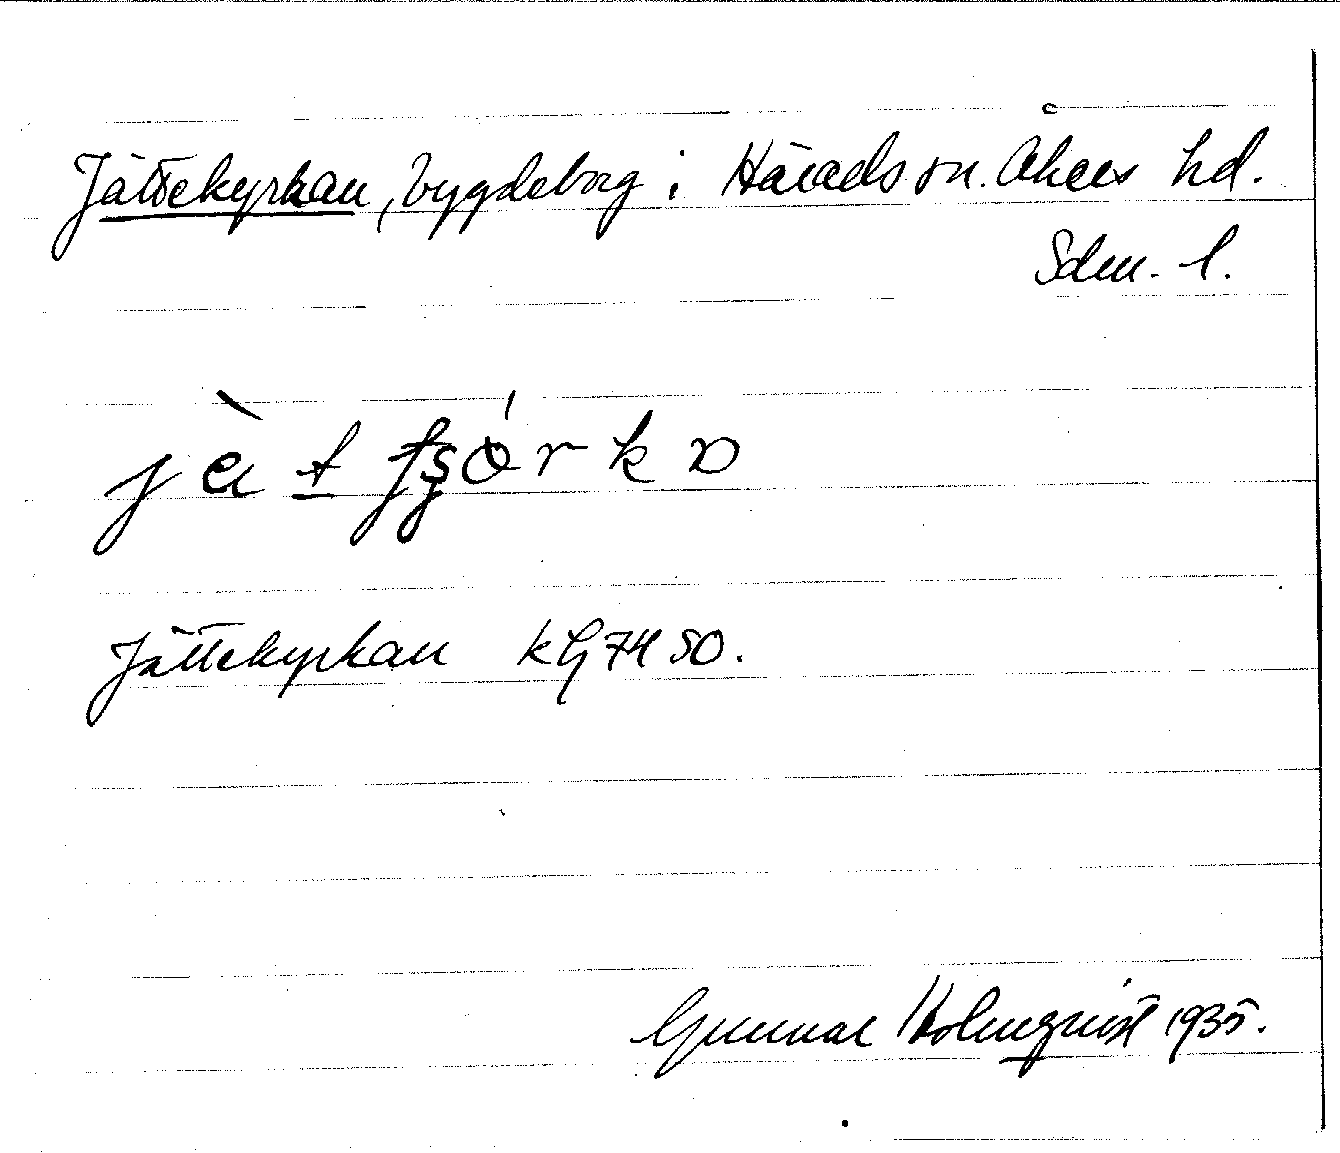 Jättekyrkan, bygdeborg i Härads sn. Åkers hd.
Sdm. l.
Jättekyrkan kG 74 SO.
Gunnar Holmqvist 1935.